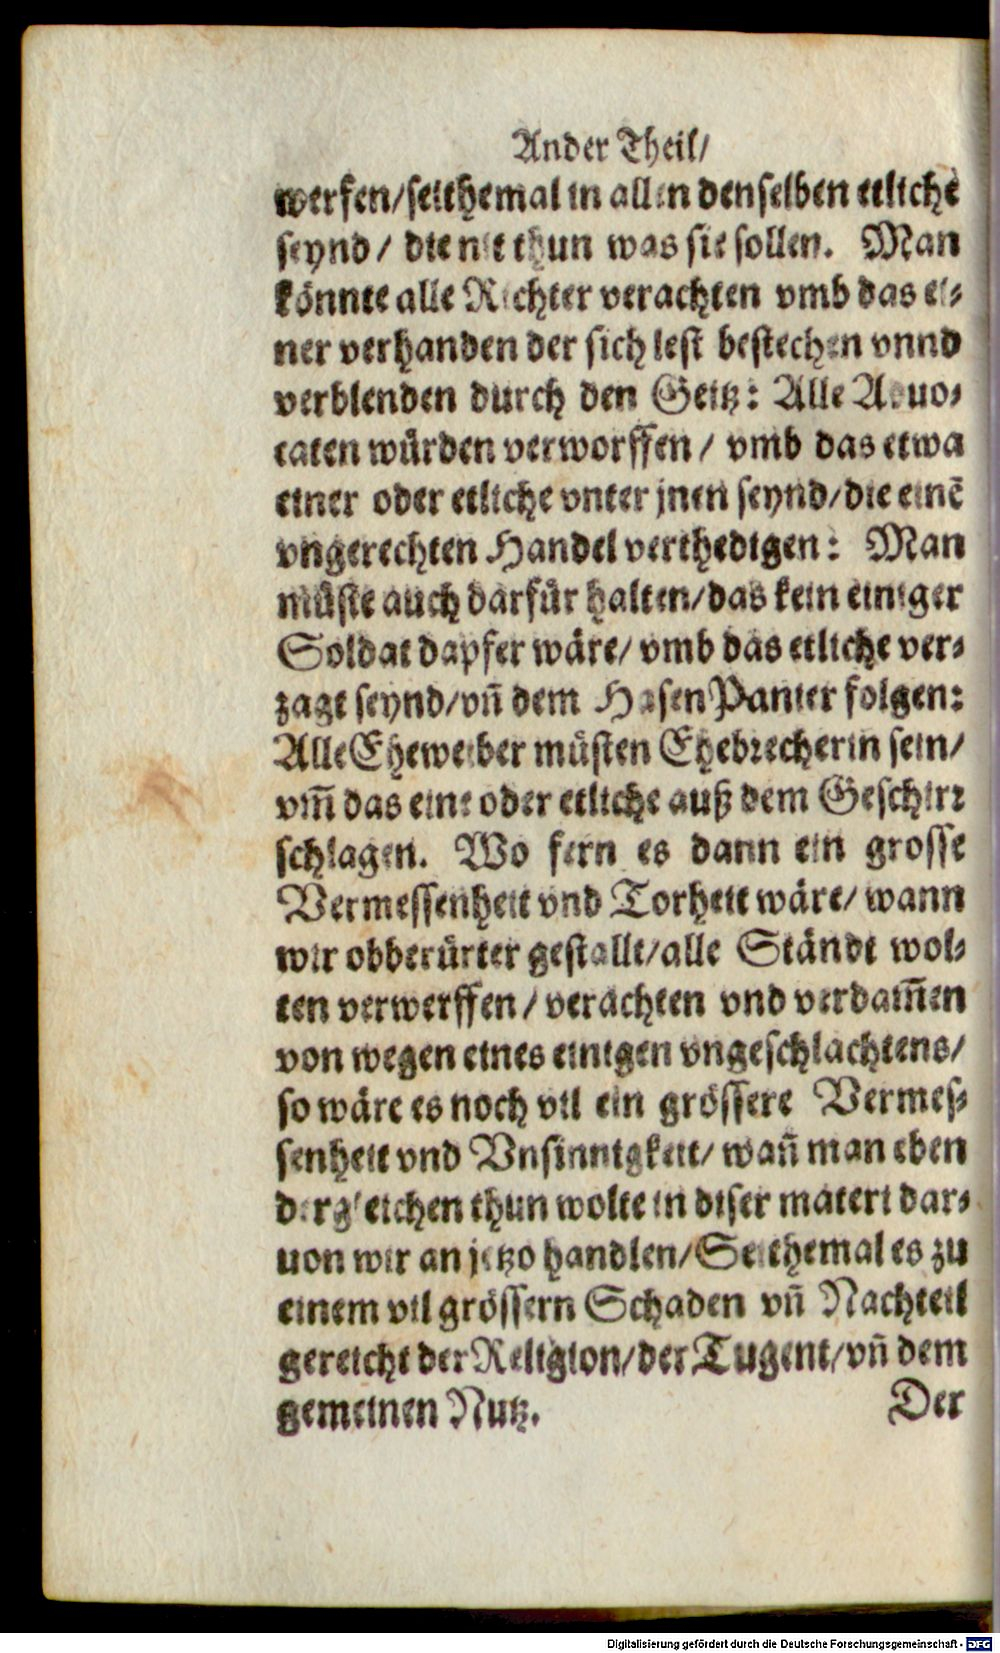 Ander Theil/
werfen/seithemal in allen denselben etliche
seynd/ die nit thun was sie sollen. Man
könnte alle Richter verachten vmb das ei-
ner verhanden der sich lest bestechen vnnd
verblenden durch den Geitz: Alle Aduo-
caten würden verworffen/ vmb das etwa
einer oder etliche vnter jnen seynd/die einē
vngerechten Handel verthedigen: Man
müste auch darfür halten/das kein einiger
Soldat dapfer wäre/ vmb das etliche ver-
zagt seynd/vn̄ dem HasenPanier folgen:
Alle Eheweiber müsten Ehebrecherin sein/
vm̄ das eine oder etliche auß dem Geschirr
schlagen. Wo fern es dann ein grosse
Vermessenheit vnd Torheit wäre/ wann
wir obberürter gestallt/alle Ständt wol-
ten verwerffen/ verachten vnd verdam̄en
von wegen eines einigen vngeschlachtens/
so wäre es noch vil ein grössere Vermes-
senheit vnd Vnsinnigkeit/ wan̄ man eben
dergleichen thun wolte in diser materi dar-
uon wir an jetzo handlen/Seithemal es zu
einem vil grössern Schaden vn̄ Nachteil
gereicht der Religion/der Tugent/vn̄ dem
gemeinen Nutz. Der
Digitalisierung gefördert durch die Deutsche Forschungsgemeinschaft - DFG